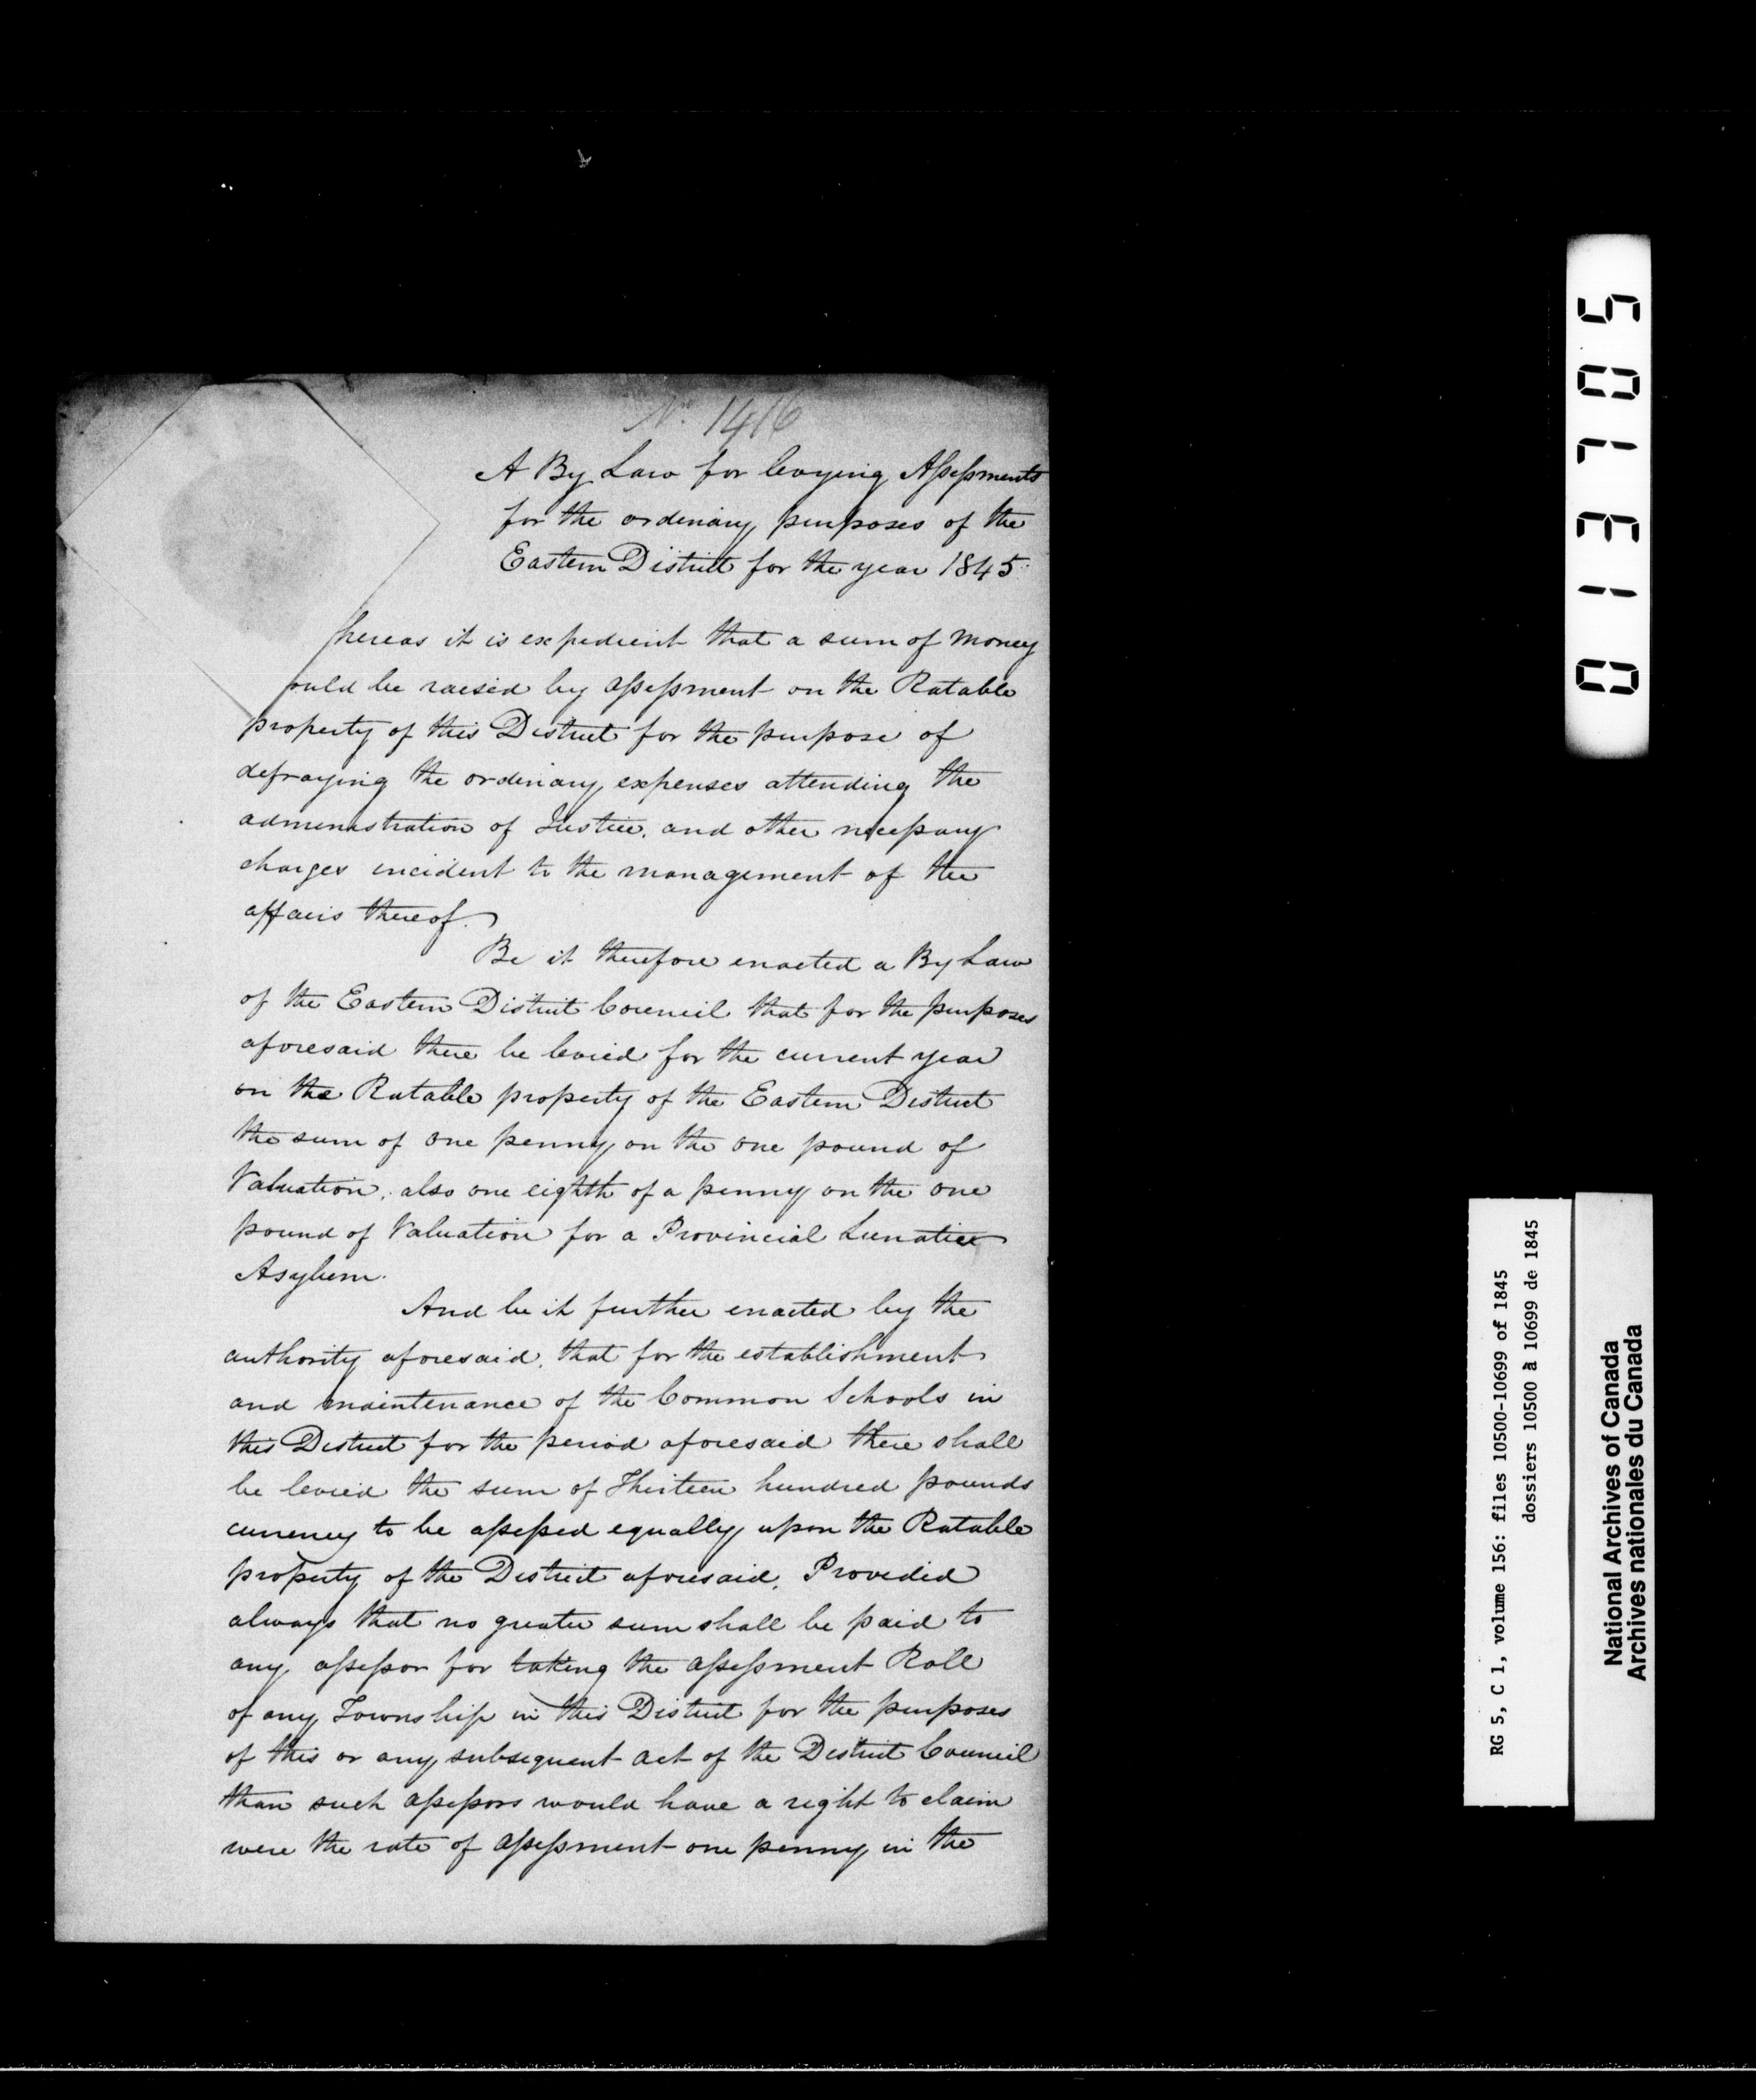 No. 1416
A By Law for levying Assessments
for the ordinary purposes of the
Eastern District for the year 1845
hereas it is expedient that a sum of money
ould be raised by assessment on the Ratable
property of this District for the purpose of
defraying the ordinary expenses attending the
administration of Justice, and other necessary
charges incident to the management of the
affairs thereof.
Be it therefore enacted a By Law
of the Eastern District Council that for the purposes
aforesaid there be levied for the current year
on the Ratable property of the Eastern District
the sum of one penny on the one pound of
Valuation, also one eighth of a penny on the one
pound of Valuation for a Provincial Lunatic
Asylum.
And be it further enacted by the
authority aforesaid, that for the establishment
and maintenance of the Common Schools in
this District for the period aforesaid there shall
be levied the sum of Thirteen hundred pounds
currency to be assessed equally upon the Ratable
property of the District aforesaid, Provided
always that no greater sum shall be paid to
any assessor for taking the assessment Roll
of any Township in this District for the purposes
of this or any subsequent act of the District Council
than such assessors would have a right to claim
were the rate of assessment one penny in the
013705
RG 5, C 1, volume 156: files 10500-10699 of 1845
dossiers 10500 à 10699 de 1845
National Archives of Canada
Archives nationales du Canada